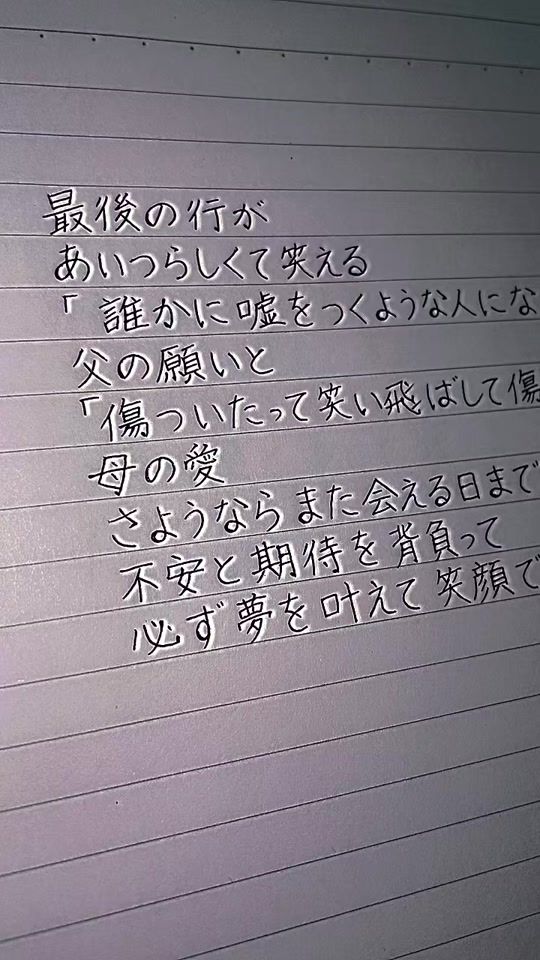 最後の行が
あいつらしくて笑える
「誰かに嘘をつくような人にな
父の願いと
「傷ついたって笑い飛ばして傷
母の愛
さようなら また会える日まで
不安と期待を背負って
必ず夢を叶えて 笑顔で